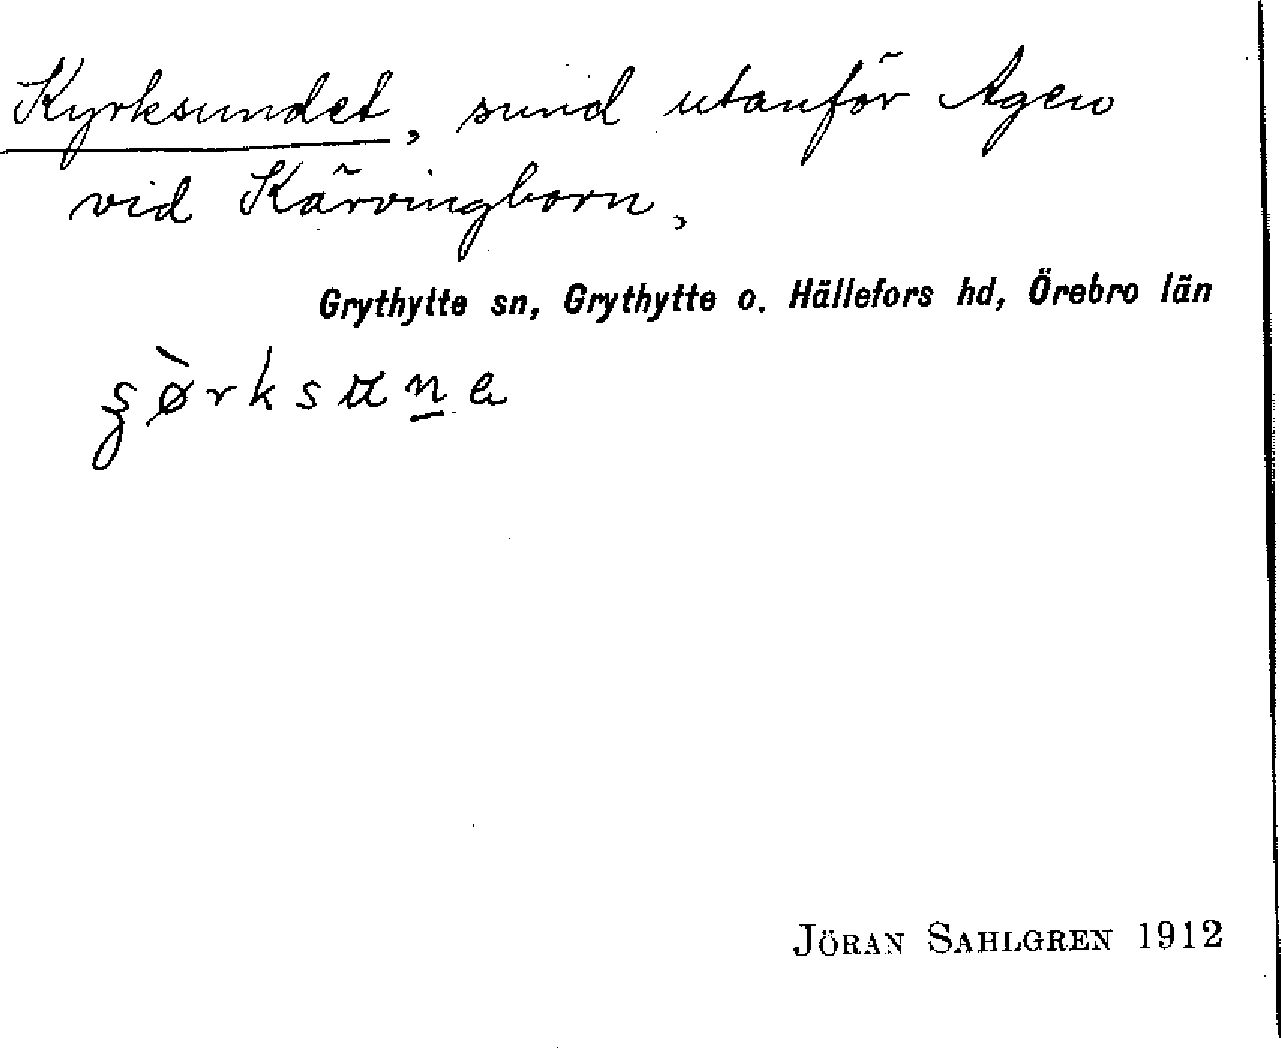 Kyrksundet, sund utanför Agen
vid Kärvingborn,
Grythytte sn, Grythytte o. Hällefors hd, Örebro län
JÖRAN SAHLGREN 1912